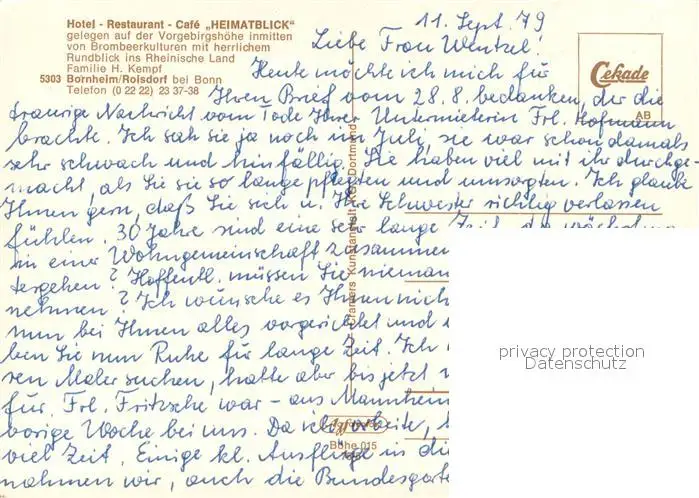 Hotel - Restaurant - Café „HEIMATBLICK"
gelegen auf der Vorgebirgshöhe inmitten
von Brombeerkulturen mit herrlichem
Rundblick ins Rheinische Land
Familie H. Kempf
5303 Bornheim/Roisdorf bei Bonn
Telefon (0 22 22) 23 37-38
Cekade
AB
11. Sept. 79
Liebe Frau Wentzel!
Heute möchte ich mich für
Ihren Brief vom 28. 8. bedanken, der die
traurige Nachricht vom Tode Ihrer Untermieterin Frl. Hofmann
brachte. Ich sah sie ja noch im Juli, sie war schon damals
sehr schwach und hinfällig. Sie haben viel mit ihr durchge-
macht, als Sie sie so lange pflegten und umsorgten. Ich glaube
Ihnen gern, daß Sie sich u. Ihre Schwester richtig verlassen
fühlen. 30 Jahre sind eine sehr lange Zeit, da
in einer Wohngemeinschaft zusammen
tergehen? Hoffentl. müssen Sie nieman
nehmen? Ich wünsche es Ihnen nich
nun bei Ihnen alles vorgerichtet und
ben Sie nun Ruhe für lange Zeit. Ich
sen Maler suchen, hatte aber bis jetzt
für. Frl. Fritzsche war - aus Mannheim
vorige Woche bei uns. Da ich arbeite,
viel Zeit. Einige kl. Ausflüge in di
nahmen wir, auch die Bundesgart
Cramers Kunstanstalt KG, Dortmund
Böhe 015
privacy protection
Datenschutz